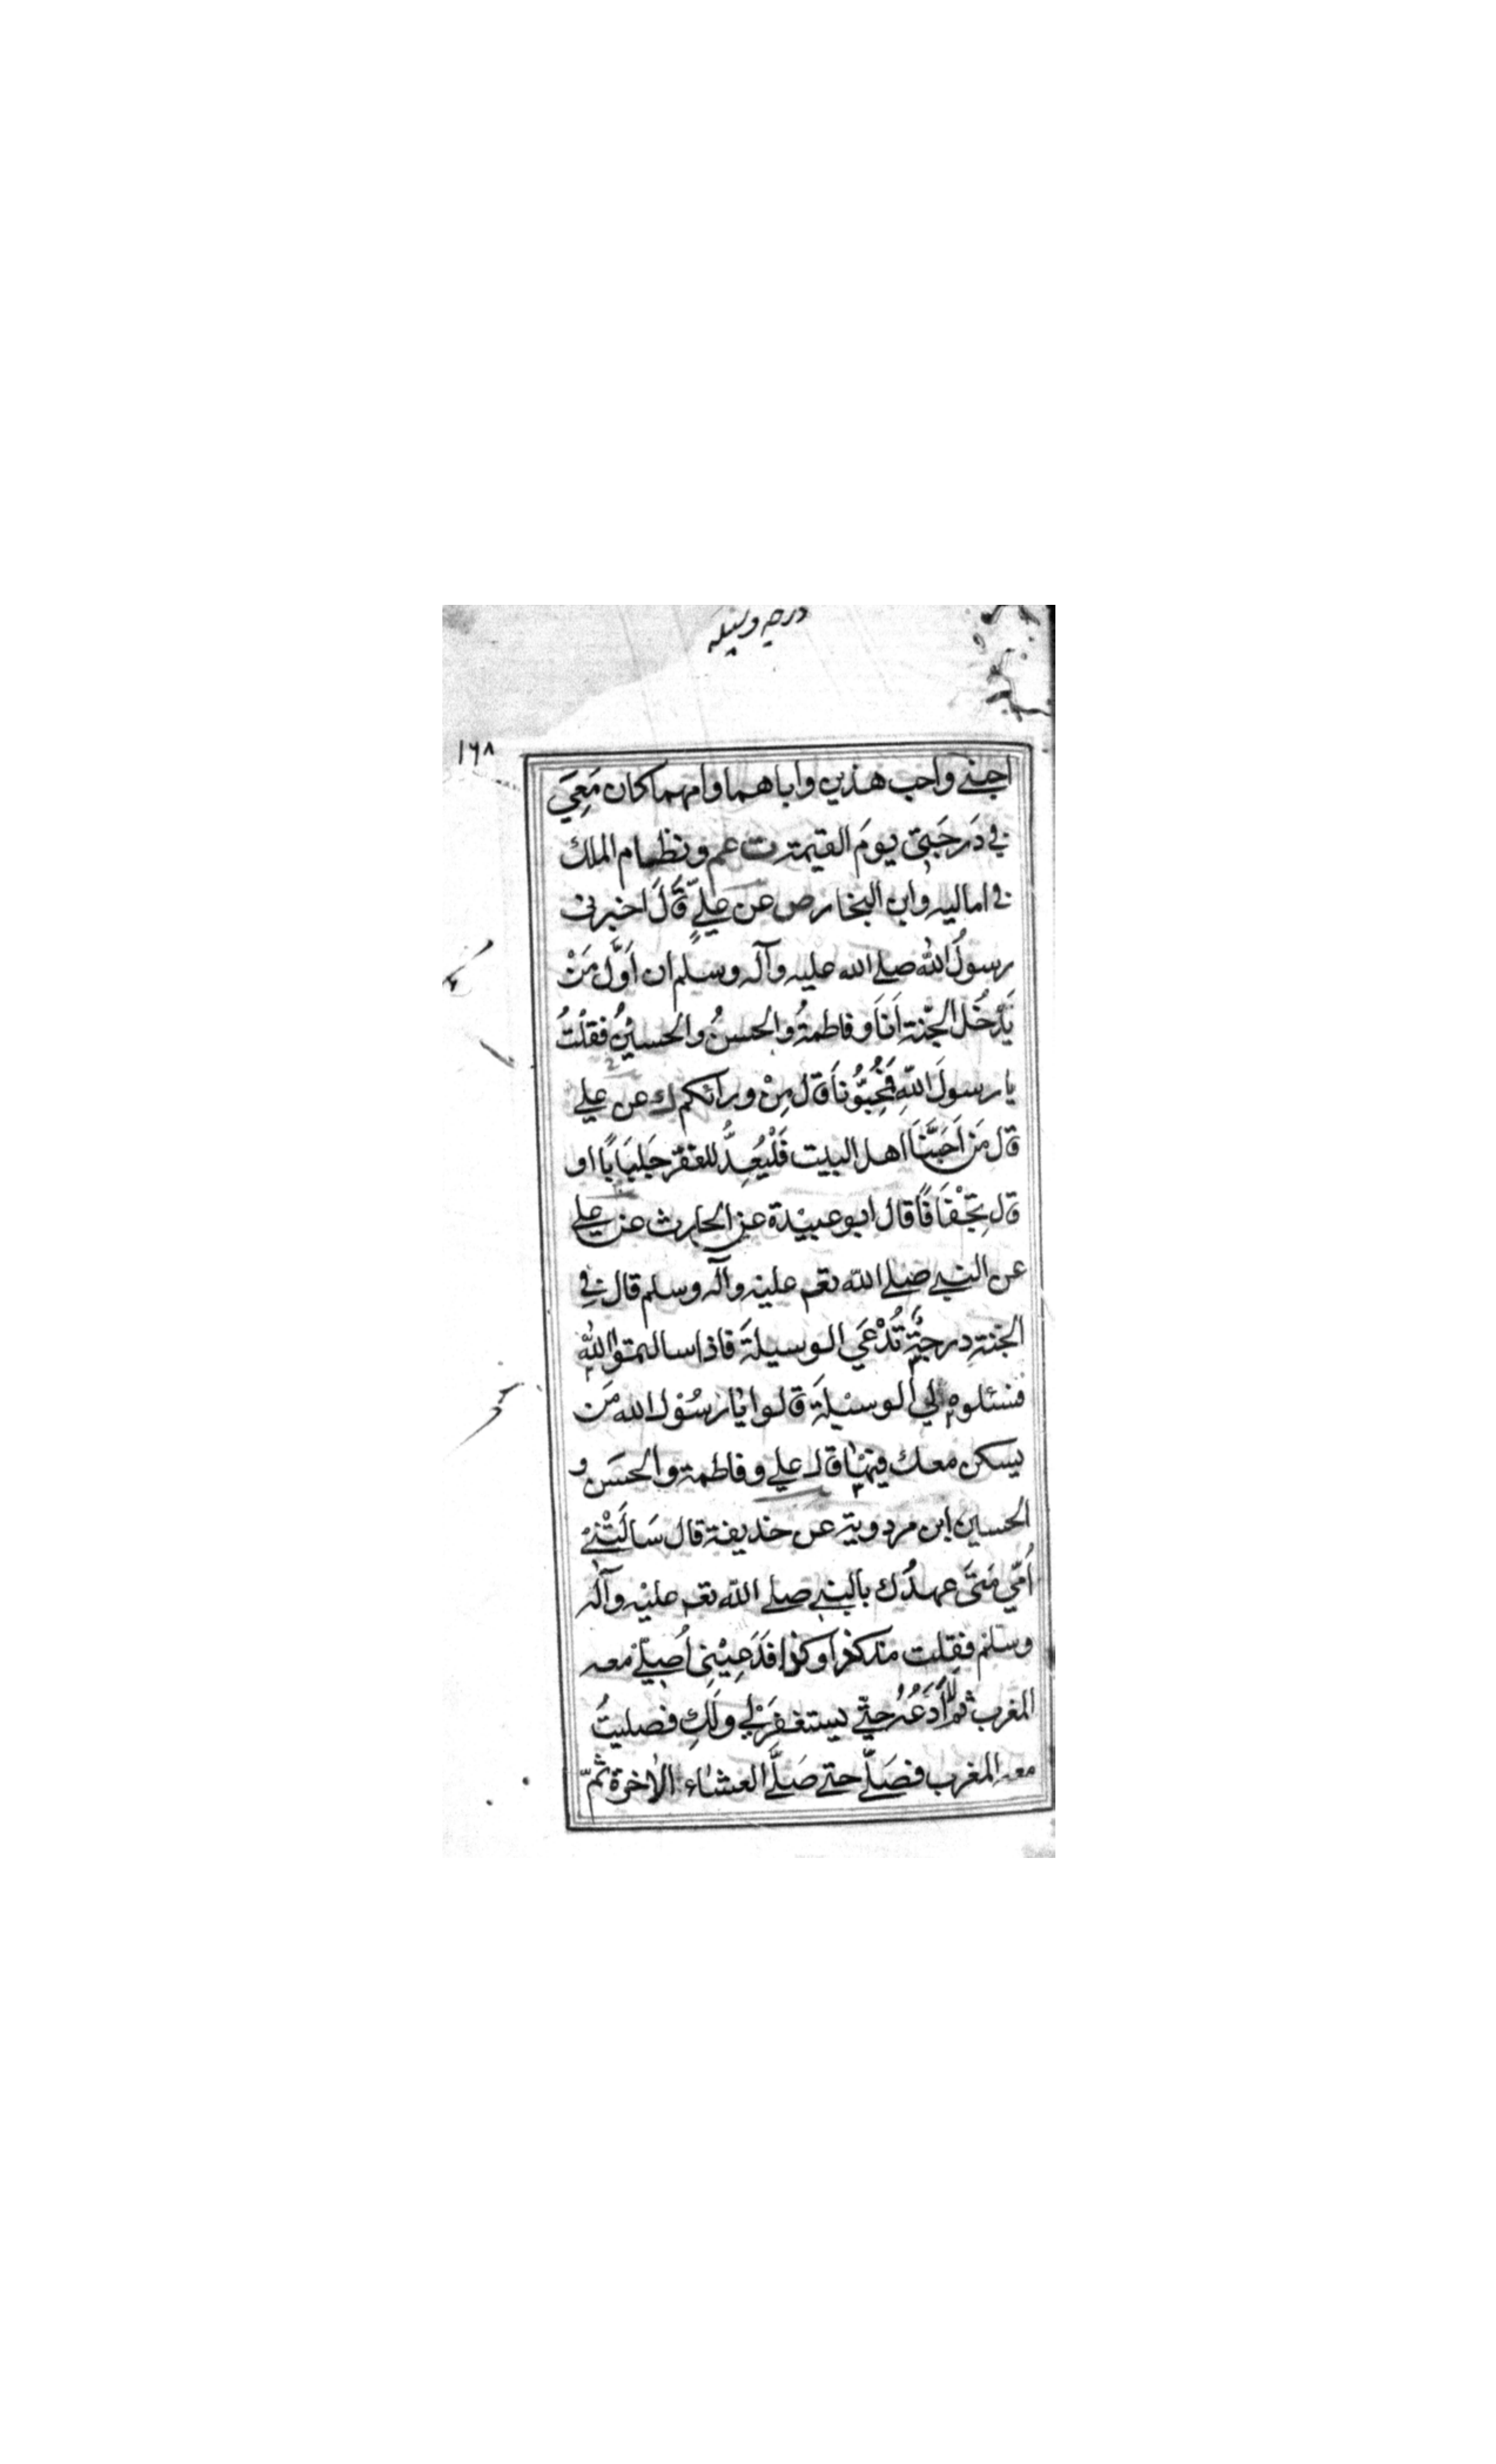 درجه وسیله
۱۶۸
احبني واحب هذين واباهما وامهما كان مَعِيَ
في دَرجَتِي يومَ القيمة ت عم ونظام الملك
في اماليه وابن النجار ص عن عليٍّ قَالَ اخبرني
رسولُ الله صلے الله عليه وآله وسلم ان اَوَّل مَنْ
يَدْخُل الجّنة اَنَا وفاطمةُ والحسنُ والحسينُ فقلْتُ
يا رسولَ اللهِ فَمُحِبُّونا قال مِنْ ورائكم ك عن علي
قال مَن اَحَبَّنَا اهل البيت فَلْيُعِدُّ للفقر جَلبَابًا او
قال تِجْفَافًا قال ابو عبيدة عن الحارث عن علي
عن النبي صلے الله تعم عليه وآله وسلم قال في
الجنة درجةٌ تُدْعَي الوسيلةَ فاذا سالتموا اللهَ
فسئلوه لي الوسيلَةَ قالوا يا رسُول الله مَن
يسكن معك فيها قال علي وفاطمة والحسَن و
الحسين ابن مردوية عن حذيفة قال سَالَتْني
اُمّي مَتَى عهدُك بالنبي صلے الله تعم عليه وآله
وسلم فقلت منذ كذا وكذا فدَعِيْنِي اُصلي معه
المغرب ثم لا اَدَعُهُ حتّي يستغفِرَ لي ولَكِ فصليتُ
معه المغرب فصَلّے حتے صَلَّے العشاء الاخرة ثُمّ